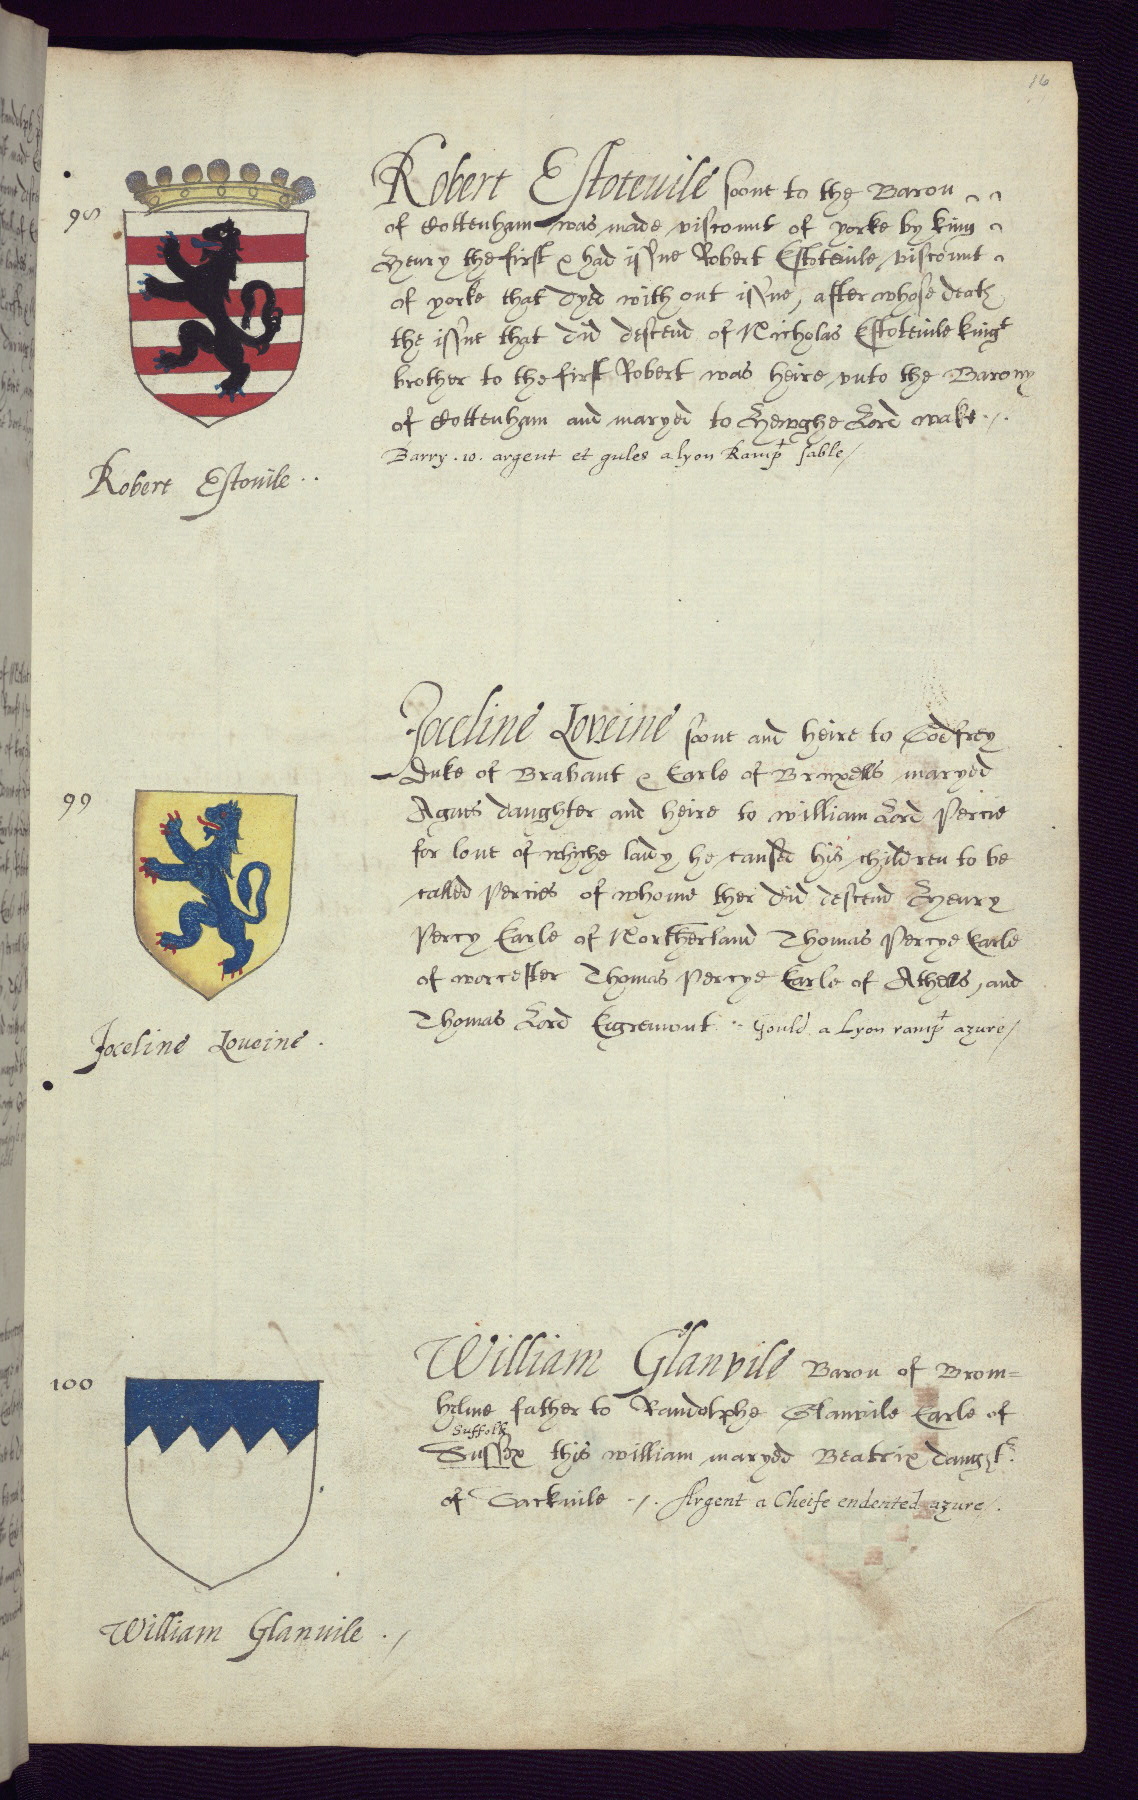 16
98
Robert Estoteuile soone to the Baron
of Cottenham was made viscount of yorke by king
Henry the first & had issue Robert Estoteuile viscount
of yorke that dyed with out issue, after whose death
the issue that did descend of Nicholas Estoteuile kingt
brother to the first Robert was heire vnto the Barony
of Cottenham and maryed to Hewghe Lord wake
Barry .10. argent et gules a lyon Rampt sable/
Robert Estouile
99
Joceline Loveine soone and heire to Godfrey
Duke of Brabant & Earle of Bruxells maryed
Agnes daughter and heire to william Lord Percie
for loue of whiche lady he caused his children to be
called Percies of whome ther did descend Henry
Percy Earle of Northerland Thomas Percye Earle
of worcester Thomas Percye Earle of Athells, and
Thomas Lord Egremont Gould a Lyon rampt azure/
Joceline Loueine
100
William Glanvile Baron of Brom=
holme father to Randolphe Glanvile Earle of
Suffolk
Sussex this william maryed Beatrix daught
of Sackuile Argent a Cheife endented azure
William Glanuile